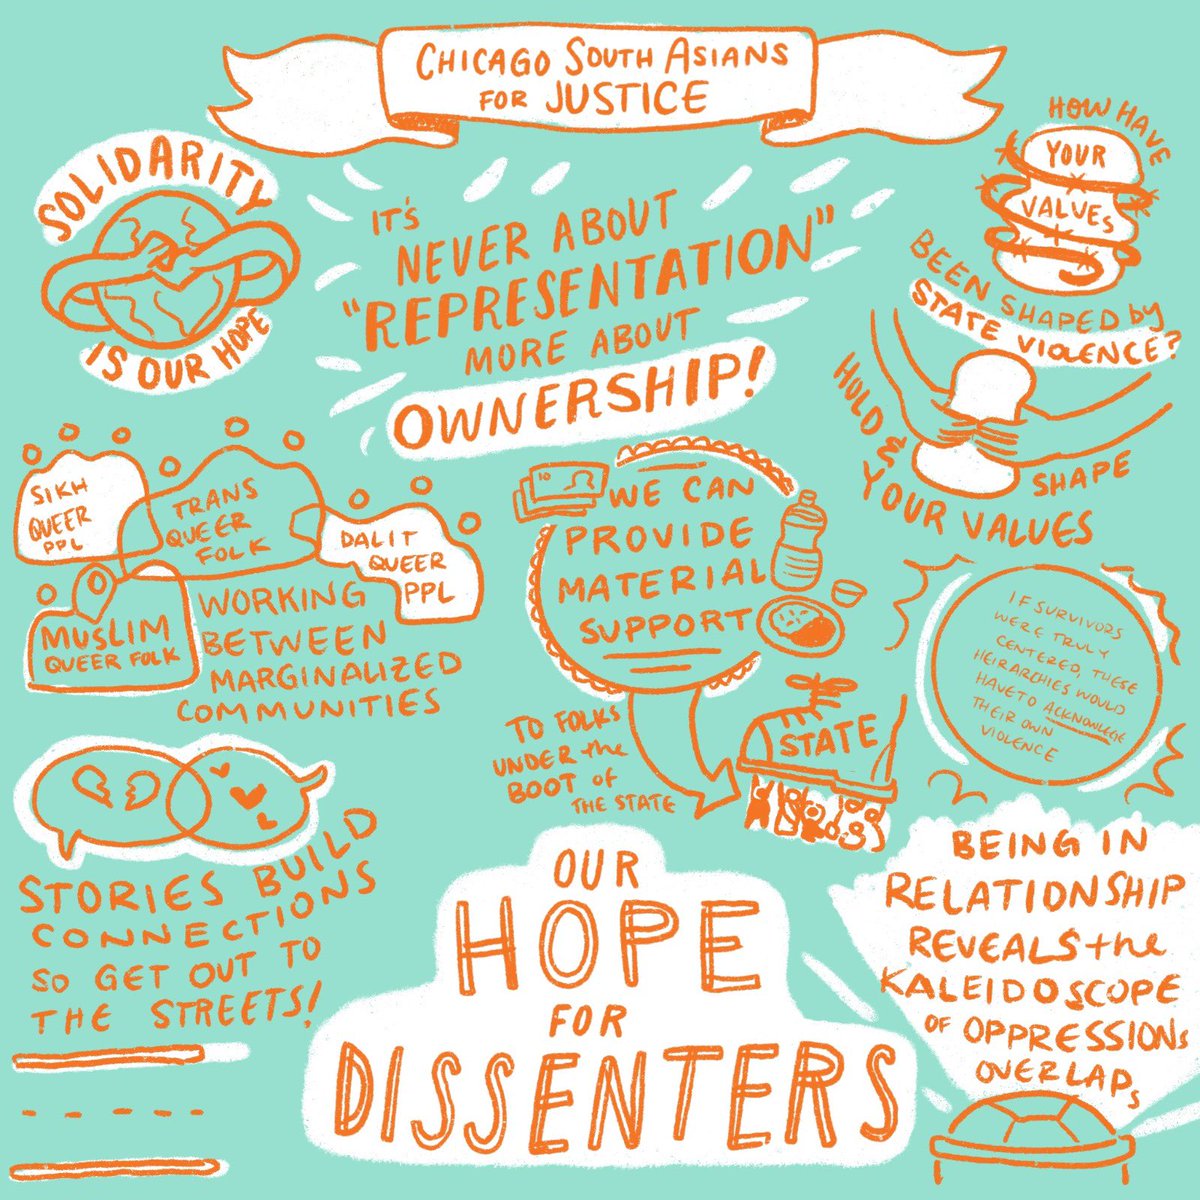 CHICAGO SOUTH ASIANS
FOR JUSTICE
SOLIDARITY
IS OUR HOPE
IT'S
NEVER ABOUT
"REPRESENTATION"
MORE ABOUT
OWNERSHIP!
HOW HAVE
YOUR
VALUES
BEEN SHAPED by
STATE VIOLENCE?
HOLD &
SHAPE
YOUR VALUES
SIKH
QUEER
PPL
TRANS
QUEER
FOLK
DALIT
QUEER
PPL
MUSLIM
QUEER FOLK
WORKING
BETWEEN
MARGINALIZED
COMMUNITIES
10
WE CAN
PROVIDE
MATERIAL
SUPPORT
TO FOLKS
UNDER the
BOOT of
THE STATE
STATE
IF SURVIVORS
WERE TRULY
CENTERED, THESE
HEIRARCHIES WOULD
HAVE TO ACKNOWLEGE
THEIR OWN
VIOLENCE
STORIES BUILD
CONNECTIONS
SO GET OUT TO
THE STREETS!
OUR
HOPE
FOR
DISSENTERS
BEING IN
RELATIONSHIP
REVEALS the
KALEIDOSCOPE
OF OPPRESSIONs
OVERLAPs